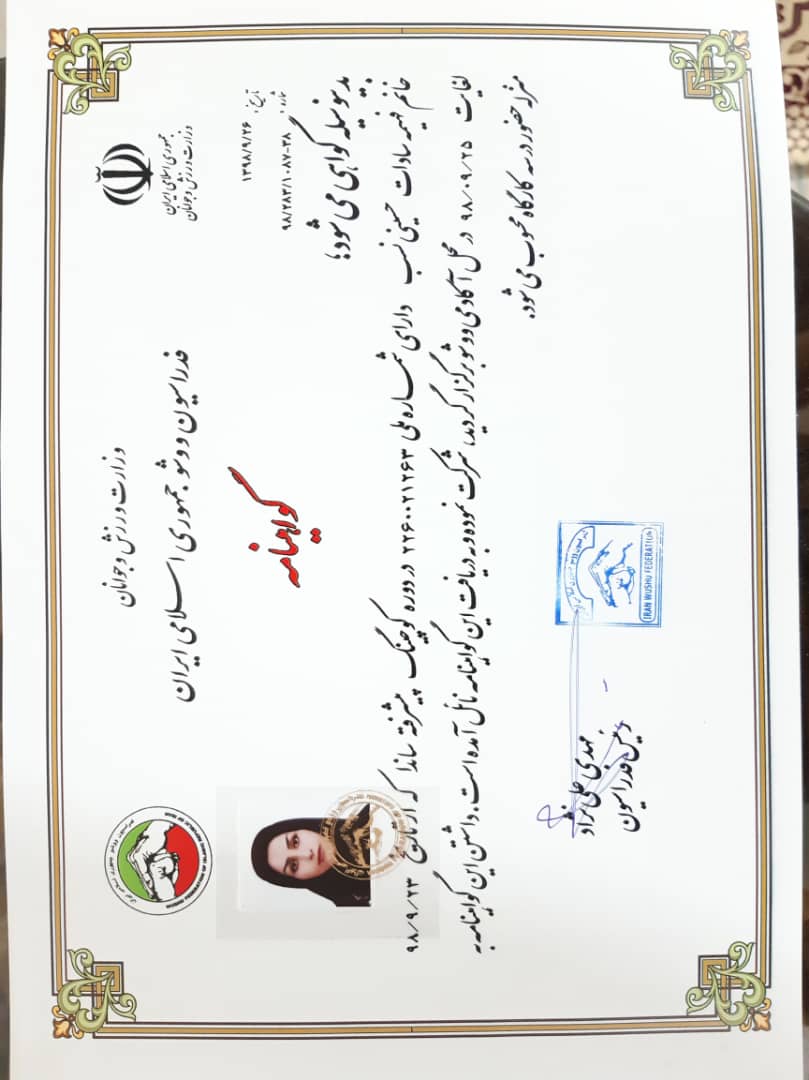 جمهوری اسلامی ایران
وزارت ورزش و جوانان
وزارت ورزش و جوانان
فدراسیون ووشو جمهوری اسلامی ایران
تاریخ: ۱۳۹۸/۹/۲۶
شماره: ۹۸/۲۸۳/۱۰۸۷-۳۸
گواهینامه
بدینوسیله گواهی می شود:
خانم فهیمه سادات حسینی نسب دارای شماره ملی ۲۲۶۰۰۲۱۲۶۳ در دوره کوچینگ پیشرفته ساندا که از تاریخ ۹۸/۹/۲۳
لغایت ۹۸/۰۹/۲۵ در محل آکادمی ووشو برگزار گردید، شرکت نموده و به دریافت این گواهینامه نائل آمده است. داشتن این گواهینامه به
منزله حضور در سه کارگاه محسوب می شود.
مهدی علی نژاد
رئیس فدراسیون
IRAN WUSHU FEDERATION